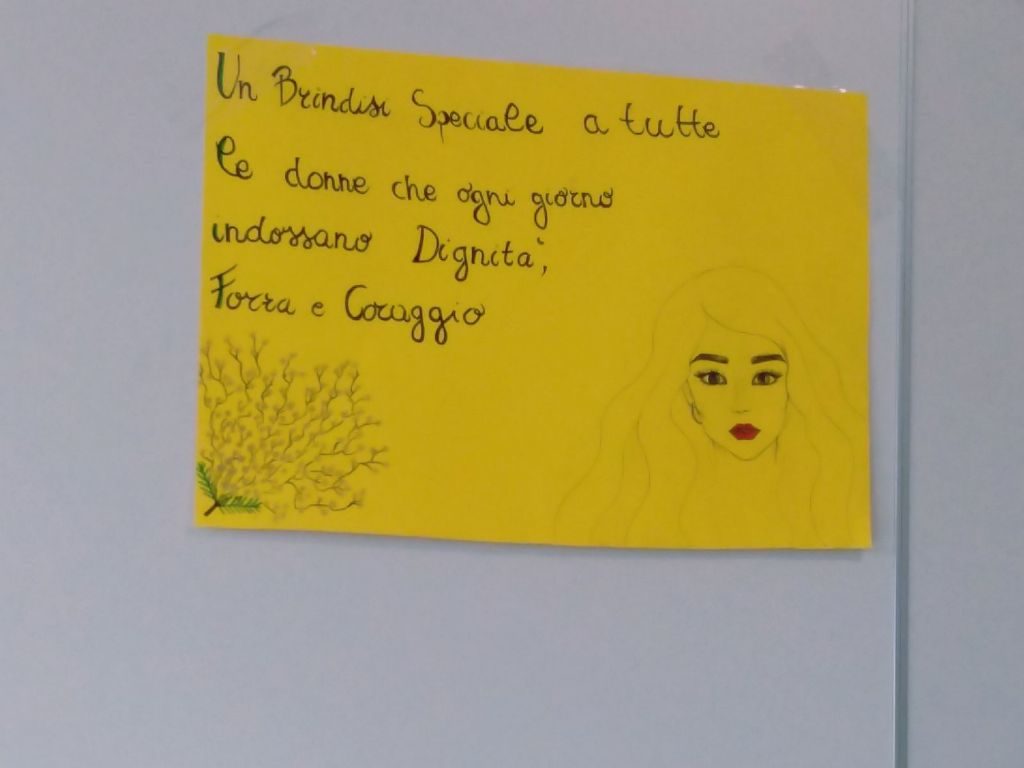 Un Brindisi Speciale a tutte
le donne che ogni giorno
indossano Dignità,
Forza e Coraggio